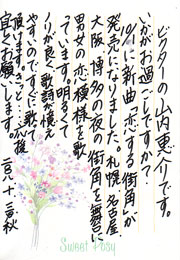 ビクターの山内惠介です。
いかがお過ごしですか?
10/1に新曲「恋する街角」が
発売になりました。札幌、名古屋
大阪、博多の夜の街角を舞台に
男女の恋模様を歌
っています。明るくて
ノリが良く歌詞が憶え
やすいのですぐに歌
頂けます。きっと
宜しくお願いします。
Sweet Posy